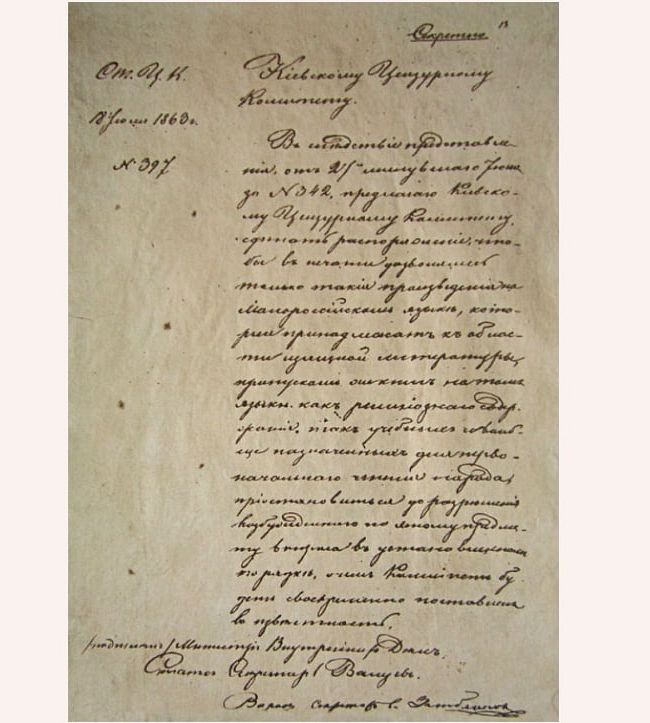 Секретно
13
От. Ц. К.
18 Июля 1863 г.
N 397
Кіевскому Цензурному
Комитету.
Въ слѣдствіе представле-
нія, отъ 27го минувшаго Іюня
за N 342, предлагаю Кіевско-
му Цензурному Комитету,
сдѣлать распоряженіе, что-
бы въ печати дозволялись
только такія произведенія на
Малороссійскомъ языкѣ, кото-
рыя принадлежатъ къ облас-
ти изящной литературы;
пропускомъ же книгъ на томъ
языкѣ какъ религіознаго содер-
жанія, такъ учебныхъ и вооб-
ще назначенныхъ для перво-
начальнаго чтенія народа,
пріостановиться до разрѣшенія
возбужденнаго по этому предме-
ту вопроса въ установленномъ
порядкѣ, о чемъ Комитетъ бу-
детъ своевременно поставленъ
въ извѣстность.
/подписалъ/ Министръ Внутреннихъ Дѣлъ,
Статсъ Секретарь Валуевъ.
Вѣрно: Секретарь